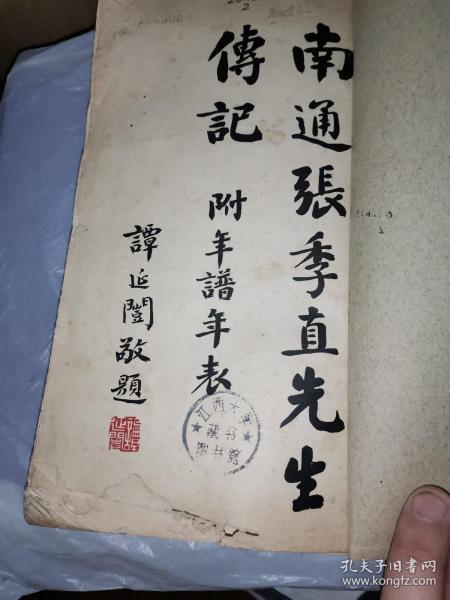 南通張季直先生
傳記 附年譜年表
譚延闓敬題
江西大學
藏书
图书館
孔夫子旧书网
www.kongfz.com